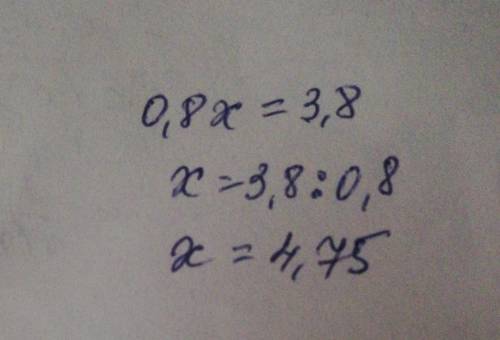 0,8x = 3,8
x = 3,8 : 0,8
x = 4,75